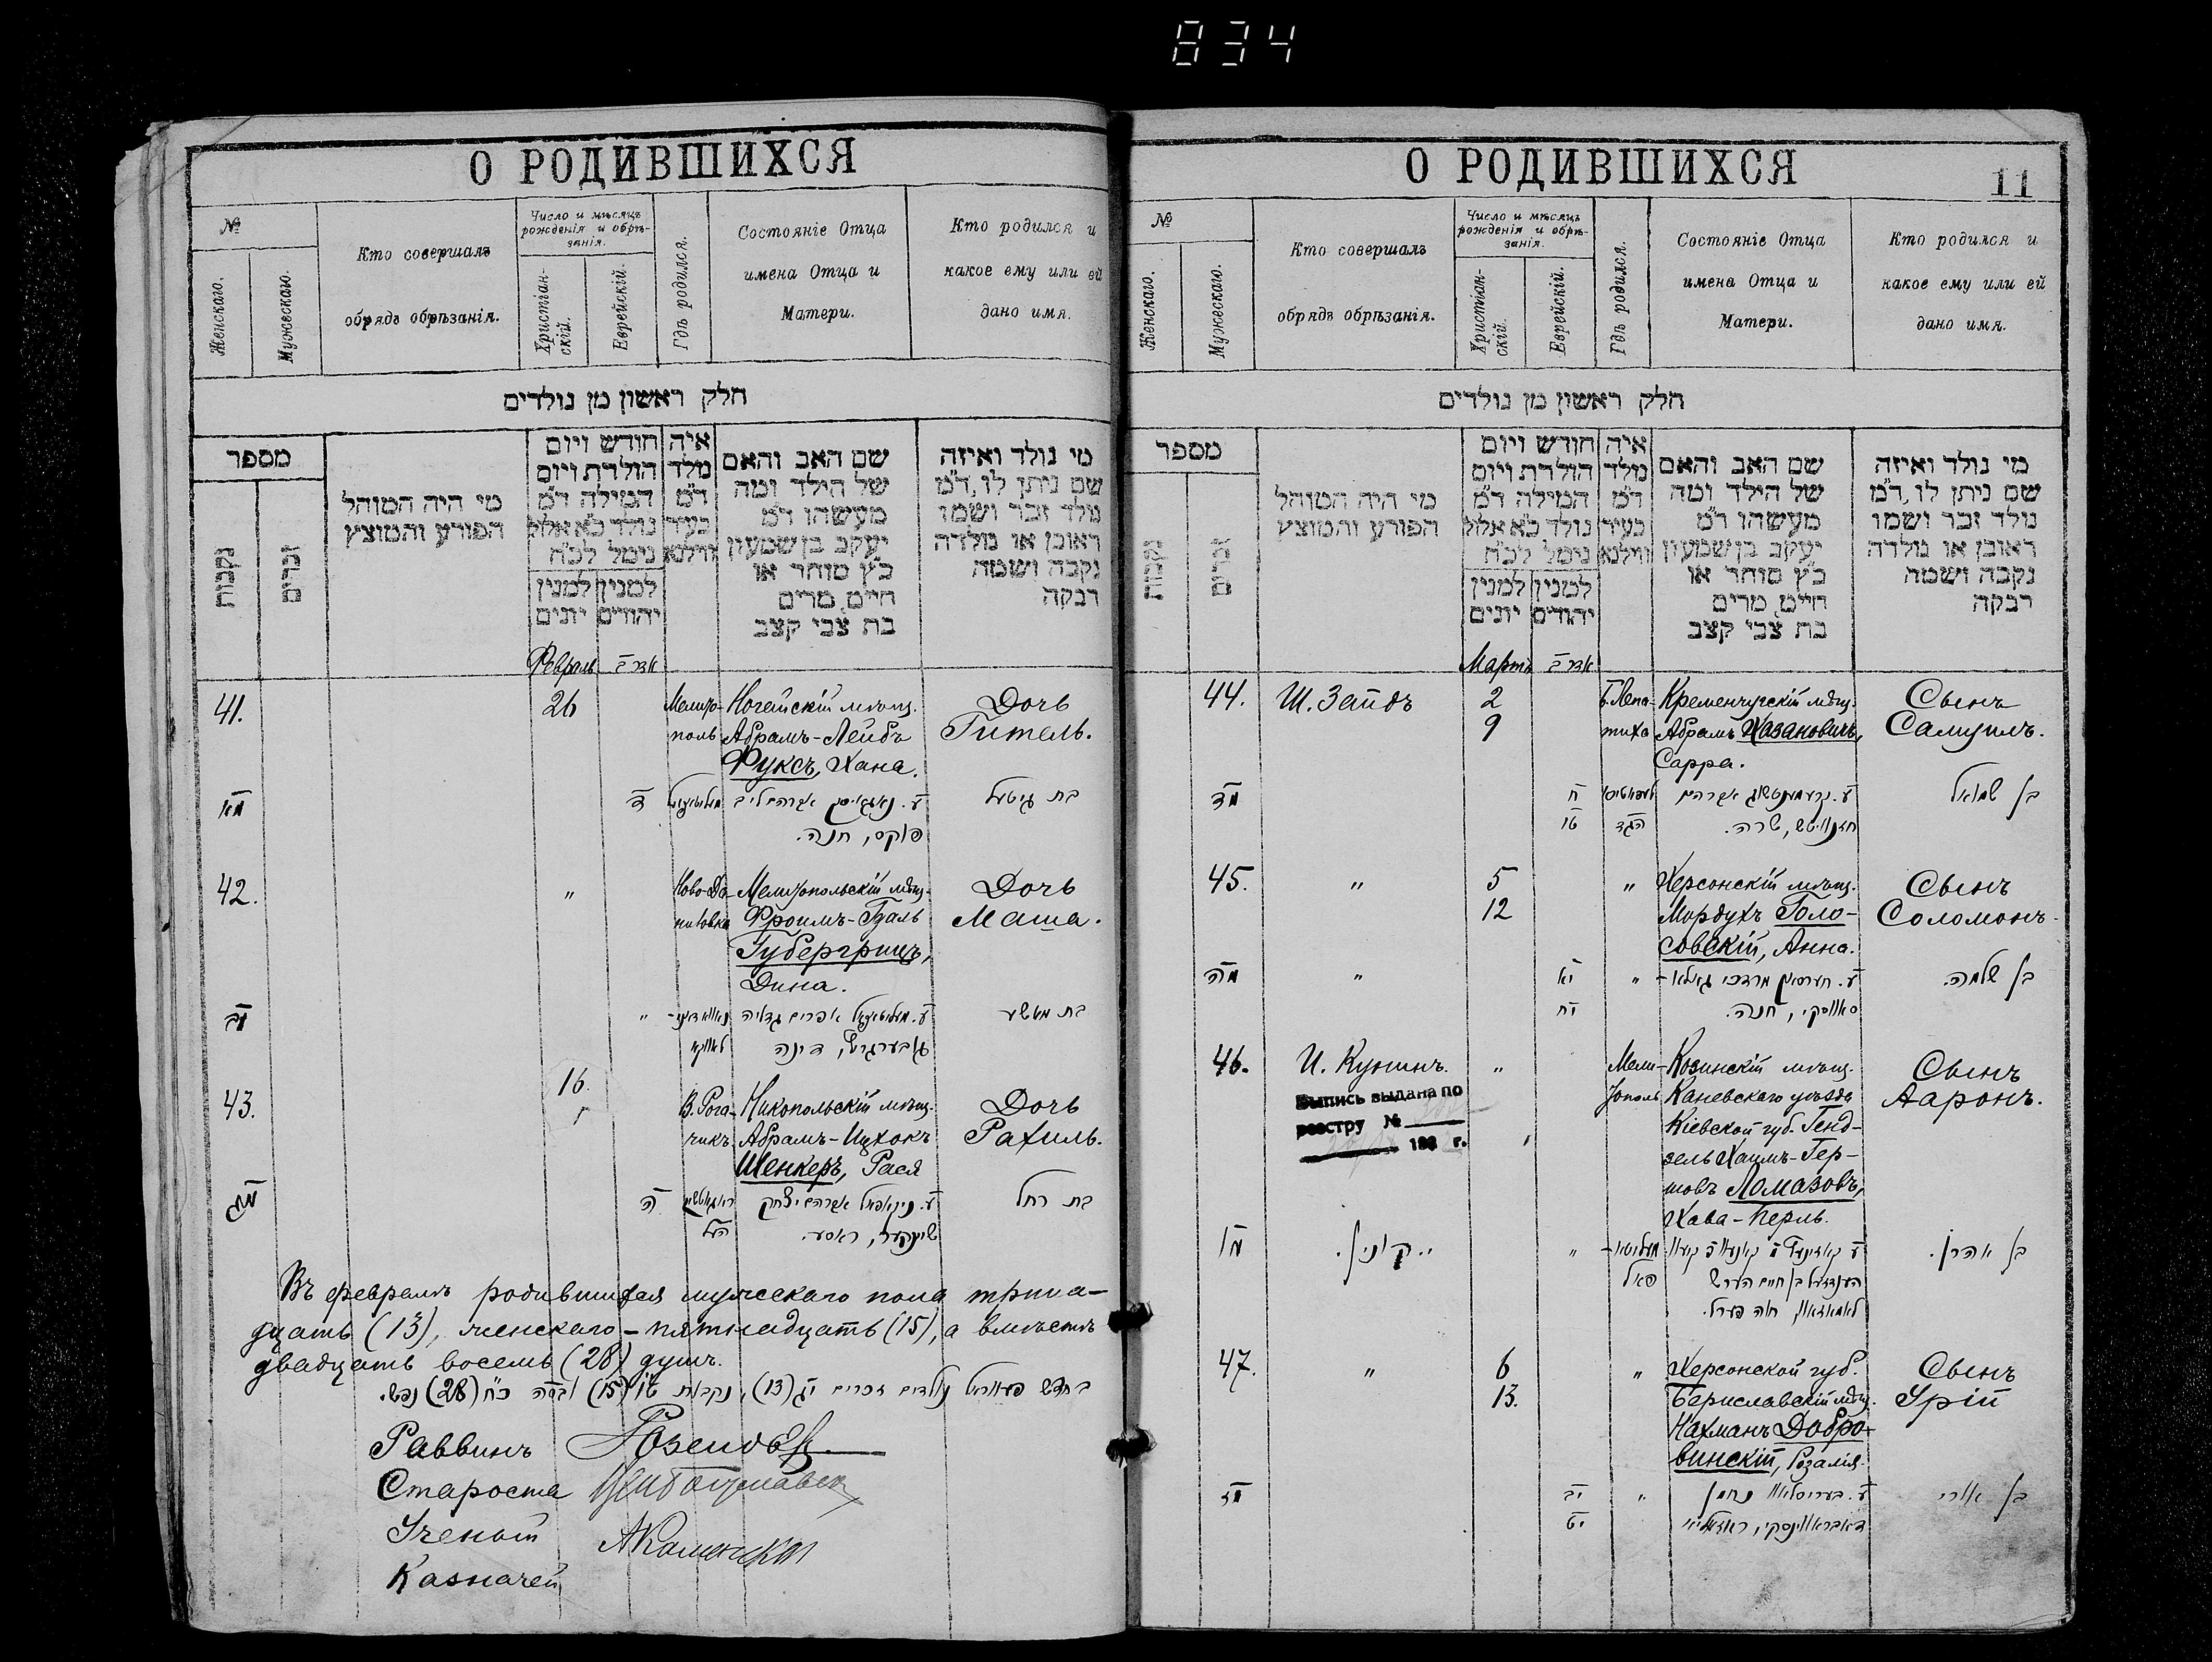 834
О РОДИВШИХСЯ
№
Женскаго.
Мужескаго.
Кто совершалъ
обрядъ обрѣзанія.
Число и мѣсяцъ
рожденія и обрѣ-
занія.
Христіан-
скій.
Еврейскій.
Гдѣ родился.
Состояніе Отца
имена Отца и
Матери.
Кто родился и
какое ему или ей
дано имя.
חלק ראשון מן נולדים
מספר
נקבות
זכרים
מי היה המוהל
הפורע והמוצץ
חודש ויום
הולדת ויום
המילה ד״מ
נולד כ״א אלול
נימל לכ״ח
למנין למנין
יהודים יונים
איה
נולד
ד״מ
בעיר
ווילנא
שם האב והאם
של הילד ומה
מעשהו ד״מ
יעקב בן שמעון
כ״ץ סוחר או
חיים, מרים
בת צבי קצב
מי נולד ואיזה
שם ניתן לו, ד״מ
נולד זכר ושמו
ראובן או נולדה
נקבה ושמה
רבקה
Февраль אדר ב
41. 26 Мелито- Ногайскій мѣщ. Дочь
поль Абрамъ-Лейбъ Гитель.
Фуксъ, Хана.
מא ד אברהם ליב בת גיטעל
פוקס, חנה.
42. " Ново-Да- Мелитопольскій мѣщ. Дочь
ниловка Фроимъ-Гдаль Маша.
Губергрицъ,
Дина.
מב " אפרים גדליה בת מאשע
דינה
16.
43. В. Рога- Никопольскій мѣщ. Дочь
чикъ. Абрамъ-Ицхокъ Рахиль.
Шенкеръ, Рася
מג ה אברהם יצחק בת רחל
שענקער, ראסע.
Въ февралѣ родившихся мужескаго пола трина-
дцать (13), женскаго – пятнадцать (15), а вмѣстѣ
двадцать восемь (28) душъ.
בחדש פעווראל נולדים זכרים י״ג (13), נקבות ט״ו (15) וביחד כ״ח (28) נפש.
Раввинъ
Староста
Ученый
Казначей
О РОДИВШИХСЯ
11
№
Женскаго.
Мужескаго.
Кто совершалъ
обрядъ обрѣзанія.
Число и мѣсяцъ
рожденія и обрѣ-
занія.
Христіан-
скій.
Еврейскій.
Гдѣ родился.
Состояніе Отца
имена Отца и
Матери.
Кто родился и
какое ему или ей
дано имя.
חלק ראשון מן נולדים
מספר
נקבות
זכרים
מי היה המוהל
הפורע והמוצץ
חודש ויום
הולדת ויום
המילה ד״מ
נולד כ״א אלול
נימל לכ״ח
למנין למנין
יהודים יונים
איה
נולד
ד״מ
בעיר
ווילנא
שם האב והאם
של הילד ומה
מעשהו ד״מ
יעקב בן שמעון
כ״ץ סוחר או
חיים, מרים
בת צבי קצב
מי נולד ואיזה
שם ניתן לו, ד״מ
נולד זכר ושמו
ראובן או נולדה
נקבה ושמה
רבקה
Мартъ אדר ב
44. Ш. Зайдъ 2 Б. Лепа- Кременчугскій мѣщ. Сынъ
9 тиха Абрамъ Хазановичъ, Самуилъ.
Сарра.
מד ח אברהם בן שמואל
טו שרה.
45. " 5 " Херсонскій мѣщ. Сынъ
12 Мордухъ Голо- Соломонъ.
совскій, Анна.
מה " יא " מרדכי בן שלמה.
יח חנה.
46. И. Кунинъ. " Мели- Козинскій мѣщ. Сынъ
тополь Каневскаго уѣзда Ааронъ.
Кіевской губ. Генд-
зель Хаимъ-Гер-
шовъ Ломазовъ,
Хава-Перль.
Выпись выдана по
реестру №
г.
מו י. קונין. " בן אהרן.
חוה פערל.
47. " 6 " Херсонской губ. Сынъ
13. Бериславскій мѣщ. Урій
Нахманъ Добро-
винскій, Розалія.
מז יב " נחמן בן אורי
יט